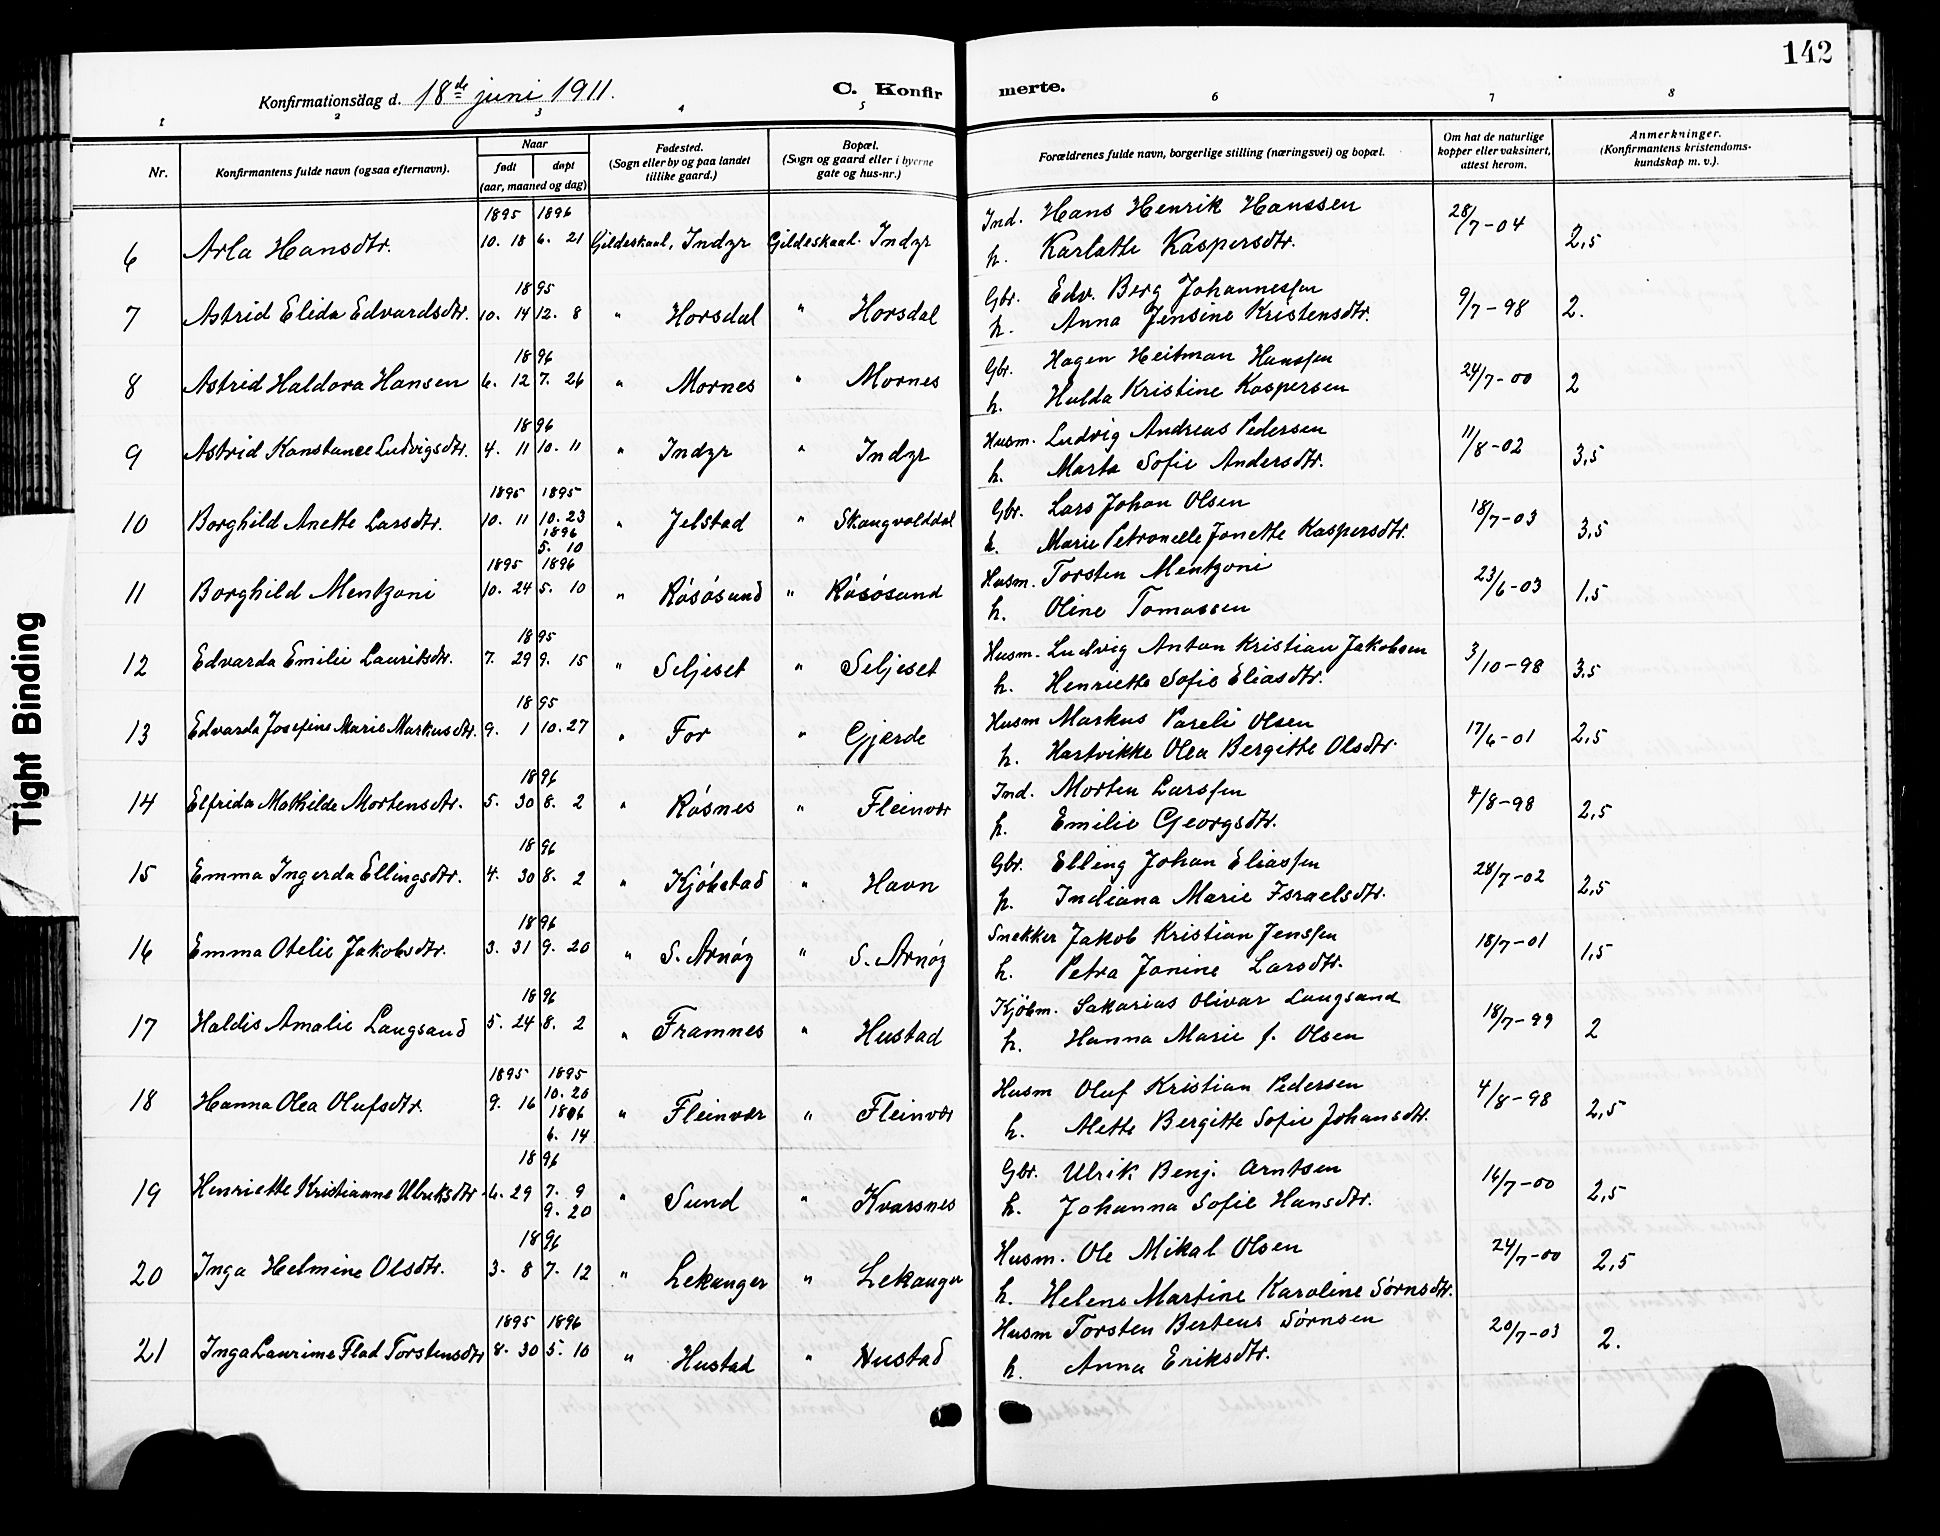 142
Konfirmationsdag d. 18de juni 1911.
C. Konfirmerte.
1 2 3 4 5 6 7 8
Nr.
Konfirmantens fulde navn (ogsaa efternavn).
Naar
født døpt
(aar, maaned og dag)
Fødested.
(Sogn eller by og paa landet
tillike gaard.)
Bopæl.
(Sogn og gaard eller i byerne
gate og hus-nr.)
Forældrenes fulde navn, borgerlige stilling (næringsvei) og bopæl.
Om hat de naturlige
kopper eller vaksinert,
attest herom.
Anmerkninger.
(Konfirmantens kristendoms-
kundskap m. v.).
1895 1896
6 Arla Hansdtr. 10. 18 6. 21 Gildeskaal, Indyr Gildeskaal. Indyr
Ind. Hans Henrik Hanssen 28/7-04 2,5
h. Karlotte Kaspersdtr.
1895
7 Astrid Elida Edvardsdtr. 10. 14 12. 8 " Horsdal " Horsdal
Gbr. Edv. Berg Johannessen 9/7-98 2.
h. Anna Jensine Kristensdtr.
1896
8 Astrid Haldora Hansen 6. 12 7. 26 " Mornes " Mornes
Gbr. Hagen Heitman Hanssen 24/7-00 2
h. Hulda Kristine Kaspersen
1896
9 Astrid Konstance Ludvigsdtr. 4. 11 10. 11 " Indyr " Indyr
Husm. Ludvig Andreas Pedersen 11/8-02 3,5
h. Marta Sofie Andersdtr.
1895 1895
10 Borghild Anette Larsdtr. 10. 11 10. 23 " Jelstad " Skaugvolddal
1896
5. 10
Gbr. Lars Johan Olsen 18/7-03 3,5
h. Marie Petronelle Jonette Kaspersdtr.
1895 1896
11 Borghild Mentzoni 10. 24 5. 10 " Røsøsund " Røsøsund
Husm. Torsten Mentzoni 23/6-03 1,5
h. Oline Tomassen
1895
12 Edvarda Emilie Lauritsdtr. 7. 29 9. 15 " Seljeset " Seljeset
Husm. Ludvig Anton Kristian Jakobsen 3/10-98 3,5
h. Henriette Sofie Eliasdtr.
1895
13 Edvarda Josefine Marie Markusdtr. 9. 1 10. 27 " For " Gjærde
Husm Markus Pareli Olsen 17/6-01 2,5
h. Hartvikke Olea Bergitte Olsdtr.
1896
14 Elfrida Mathilde Mortensdtr. 5. 30 8. 2 " Røsnes " Fleinvær
Ind. Morten Larssen 4/8-98 2,5
h. Emilie Georgsdtr.
1896
15 Emma Ingerda Ellingsdtr. 4. 30 8. 2 " Kjøbstad " Havn
Gbr. Elling Johan Eliassen 28/7-02 2,5
h. Indiana Marie Israelsdtr.
1896
16 Emma Otelie Jakobsdtr. 3. 31 9. 20 " S. Arnøy " S. Arnøy
Snekker Jakob Kristian Jenssen 18/7-01 1,5
h. Petra Janine Larsdtr.
1896
17 Haldis Amalie Langsand 5. 24 8. 2 " Framnes " Hustad
Kjøbm. Sakarias Olivar Langsand 18/7-99 2
h. Hanna Marie f. Olsen
1895 1895
18 Hanna Olea Olufsdtr. 9. 16 10. 20 " Fleinvær " Fleinvær
1896
6. 14
Husm Oluf Kristian Pedersen 4/8-98 2,5
h. Alette Bergitte Sofie Johansdtr.
1896
19 Henriette Kristianne Ulriksdtr. 6. 29 7. 9 " Sund " Kvarsnes
9. 20
Gbr. Ulrik Benj. Arntsen 16/7-00 2,5
h. Johanna Sofie Hansdtr.
1896
20 Inga Helmine Olsdtr. 3. 8 7. 12 " Lekanger " Lekanger
Husm. Ole Mikal Olsen 24/7-00 2,5
h. Helene Martine Karoline Sørnsdtr.
1895 1896
21 Inga Laurine Flad Torstensdtr 8. 30 5. 10 " Hustad " Hustad
Husm Torsten Berteus Sørnsen 20/7-03 2.
h. Anna Eriksdtr.
Tight Binding